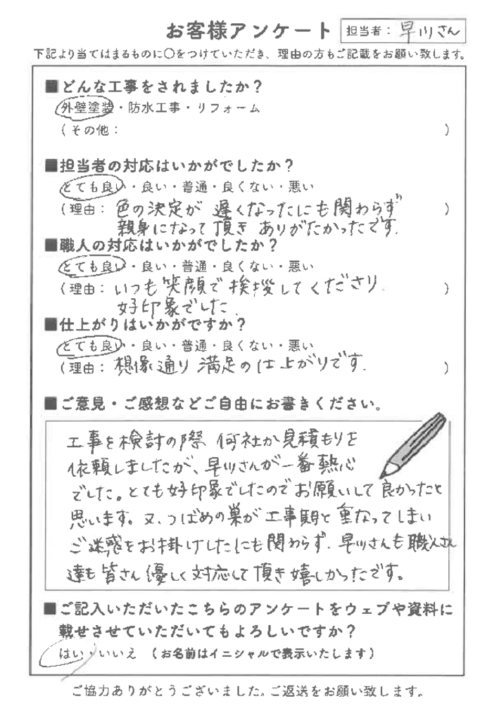 お客様アンケート 担当者：早川さん
下記より当てはまるものに○をつけていただき、理由の方もご記載をお願い致します。
■どんな工事をされましたか？
外壁塗装・防水工事・リフォーム
（その他： ）
■担当者の対応はいかがでしたか？
とても良い・良い・普通・良くない・悪い
（理由：色の決定が遅くなったにも関わらず ）
親身になって頂きありがたかったです.
■職人の対応はいかがでしたか？
とても良い・良い・普通・良くない・悪い
（理由：いつも笑顔で挨拶してくださり. ）
好印象でした.
■仕上がりはいかがですか？
とても良い・良い・普通・良くない・悪い
（理由：想像通り満足の仕上がりです. ）
■ご意見・ご感想などご自由にお書きください。
工事を検討の際 何社か見積もりを
依頼しましたが、早川さんが一番熱心
でした。とても好印象でしたのでお願いして良かったと
思います。又、つばめの巣が工事期と重なってしまい
ご迷惑をお掛けしたにも関わらず. 早川さんも職人さん
達も皆さん優しく対応して頂き嬉しかったです。
■ご記入いただいたこちらのアンケートをウェブや資料に
載せさせていただいてもよろしいですか？
はい・いいえ （お名前はイニシャルで表示いたします）
ご協力ありがとうございました。ご返送をお願い致します。